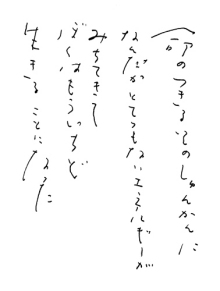 命のつきるそのしゅんかんに
なんだかとてつもないエネルギーが
みちてきて
ぼくはもういちど
生きることになった